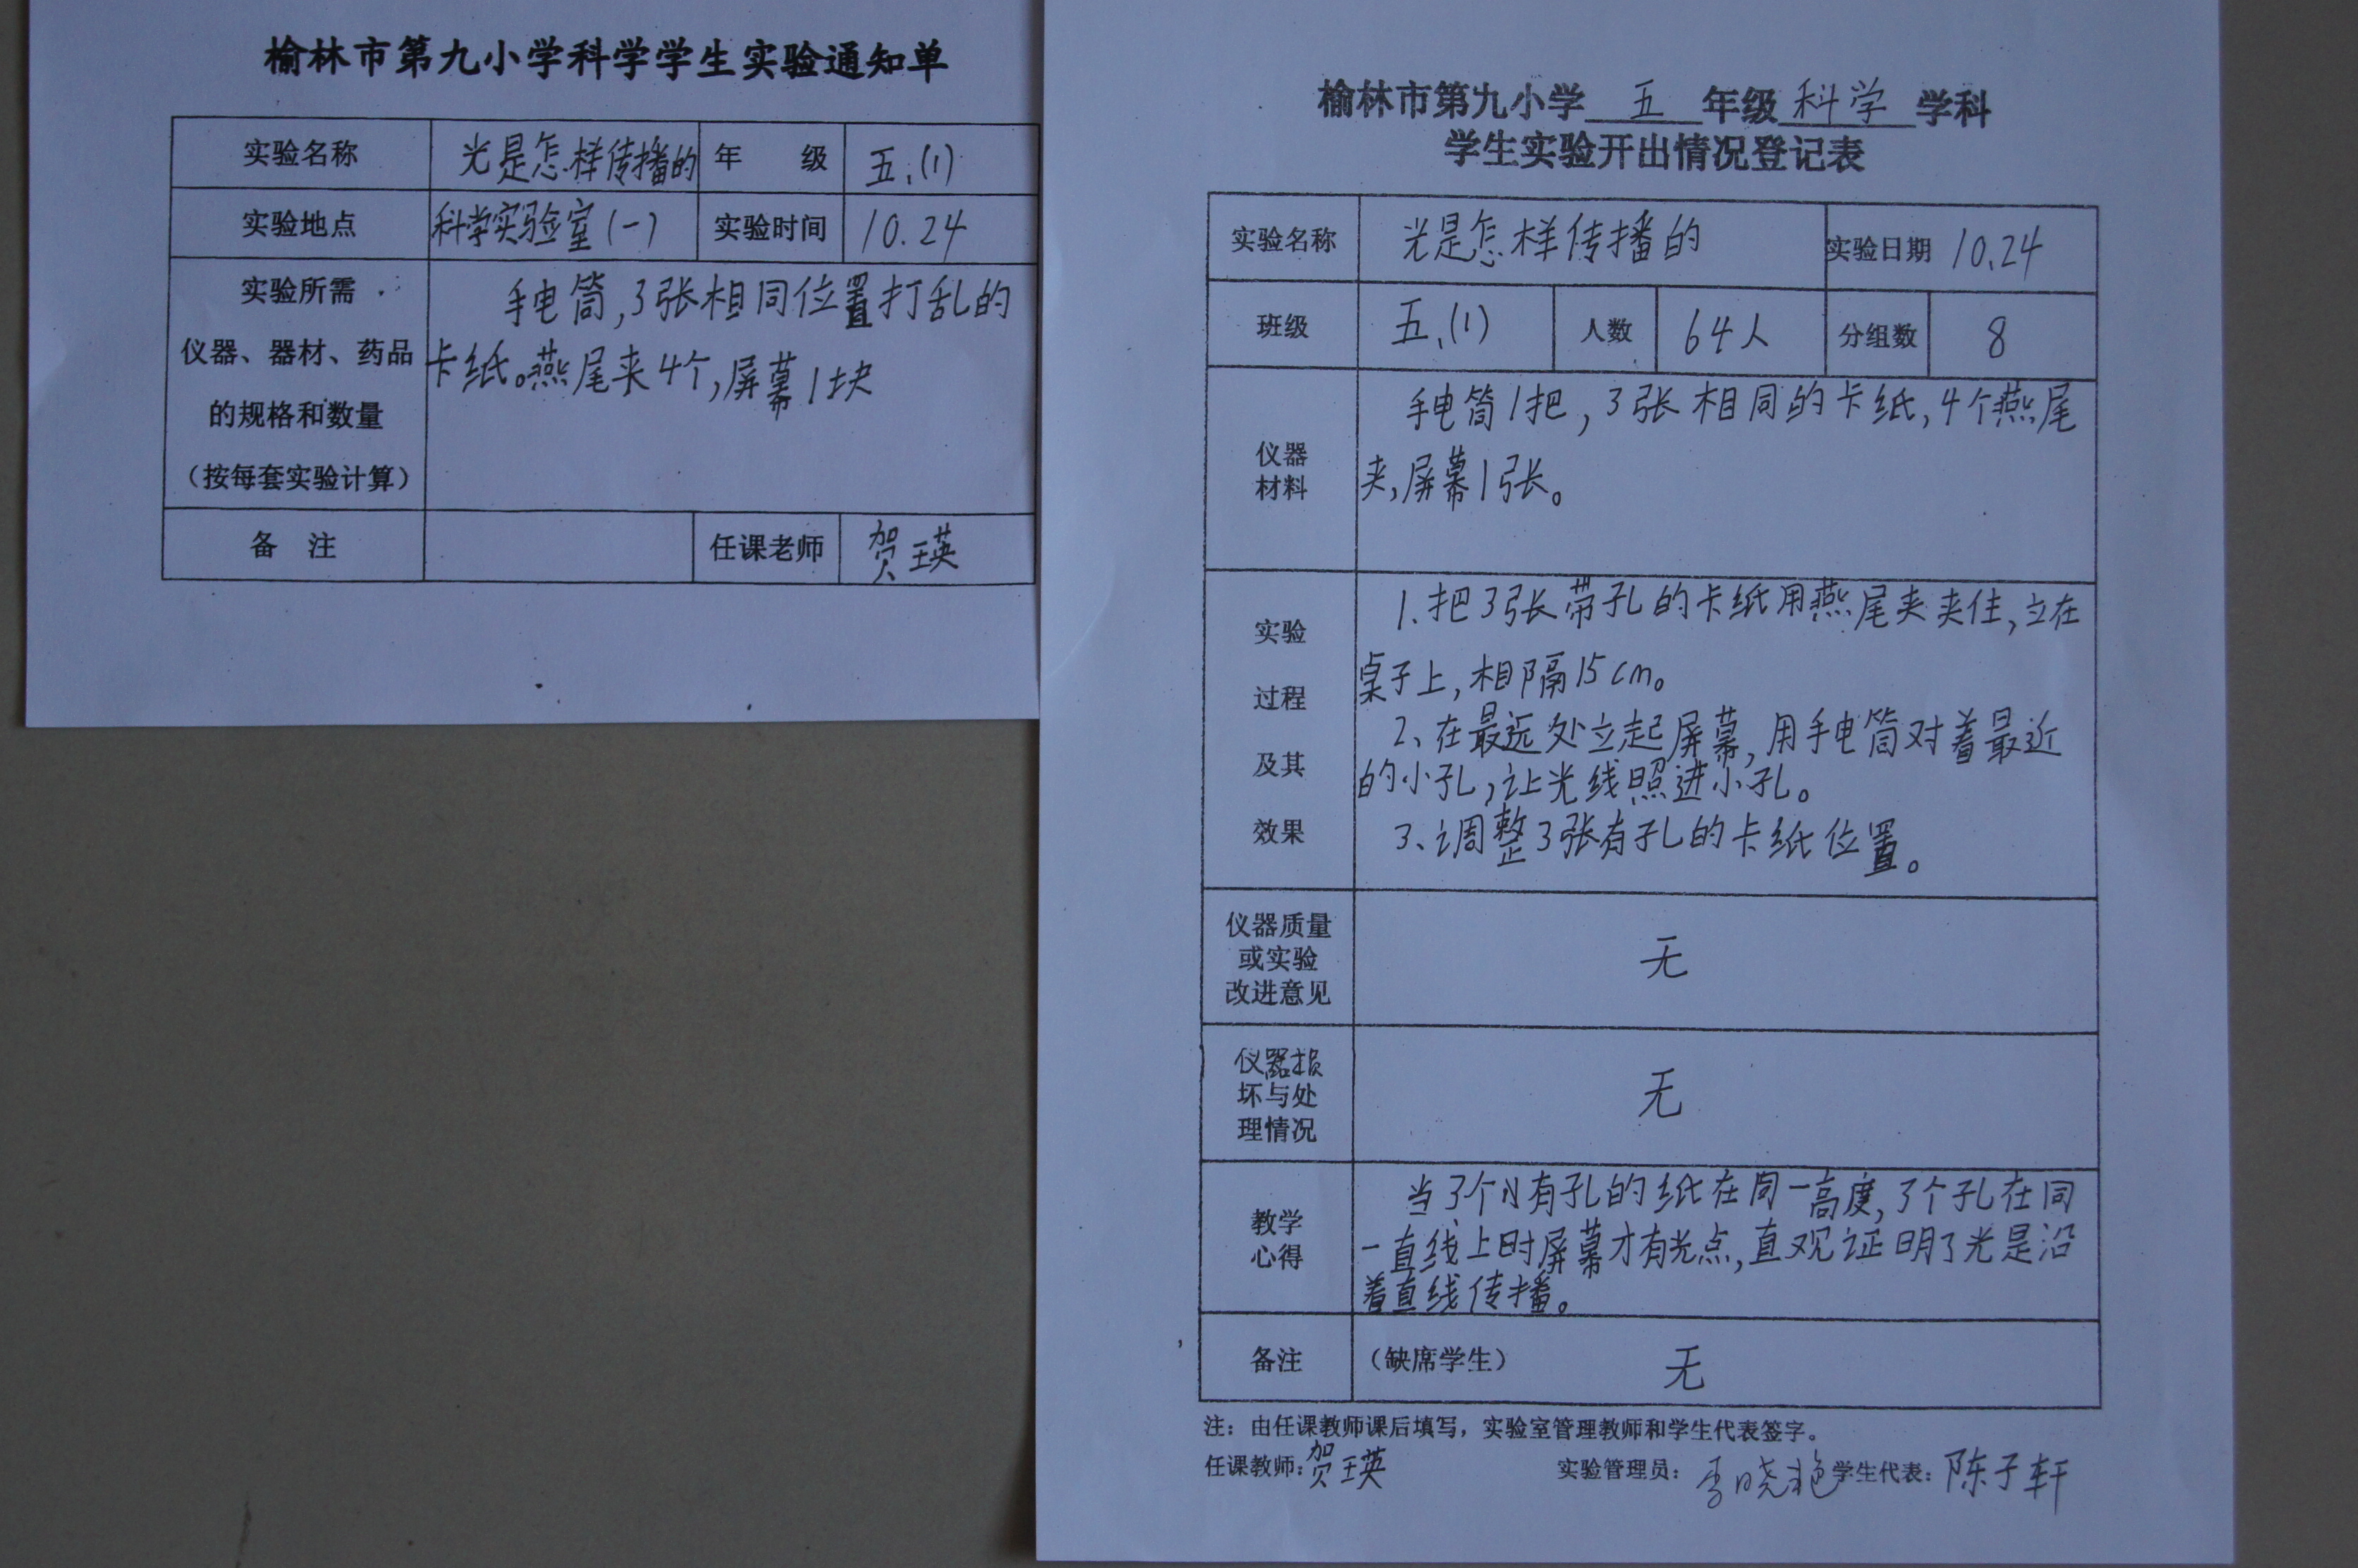 榆林市第九小学科学学生实验通知单
实验名称 光是怎样传播的 年 级 五.(1)
实验地点 科学实验室(一) 实验时间 10.24
实验所需
仪器、器材、药品
的规格和数量
(按每套实验计算)
手电筒,3张相同位置打乱的
卡纸。燕尾夹4个,屏幕1块
备 注 任课老师 贺瑛
榆林市第九小学 五 年级 科学 学科
学生实验开出情况登记表
实验名称 光是怎样传播的 实验日期 10.24
班级 五.(1) 人数 64人 分组数 8
仪器
材料
手电筒1把,3张相同的卡纸,4个燕尾
夹,屏幕1张。
实验
过程
及其
效果
1.把3张带孔的卡纸用燕尾夹夹住,立在
桌子上,相隔15cm。
2、在最远处立起屏幕,用手电筒对着最近
的小孔,让光线照进小孔。
3、调整3张有孔的卡纸位置。
仪器质量
或实验
改进意见
无
仪器损
坏与处
理情况
无
教学
心得
当3个小有孔的纸在同一高度,3个孔在同
一直线上时屏幕才有光点,直观证明了光是沿
着直线传播。
备注 (缺席学生) 无
注:由任课教师课后填写,实验室管理教师和学生代表签字。
任课教师:贺瑛 实验管理员:李晓艳 学生代表:陈子轩